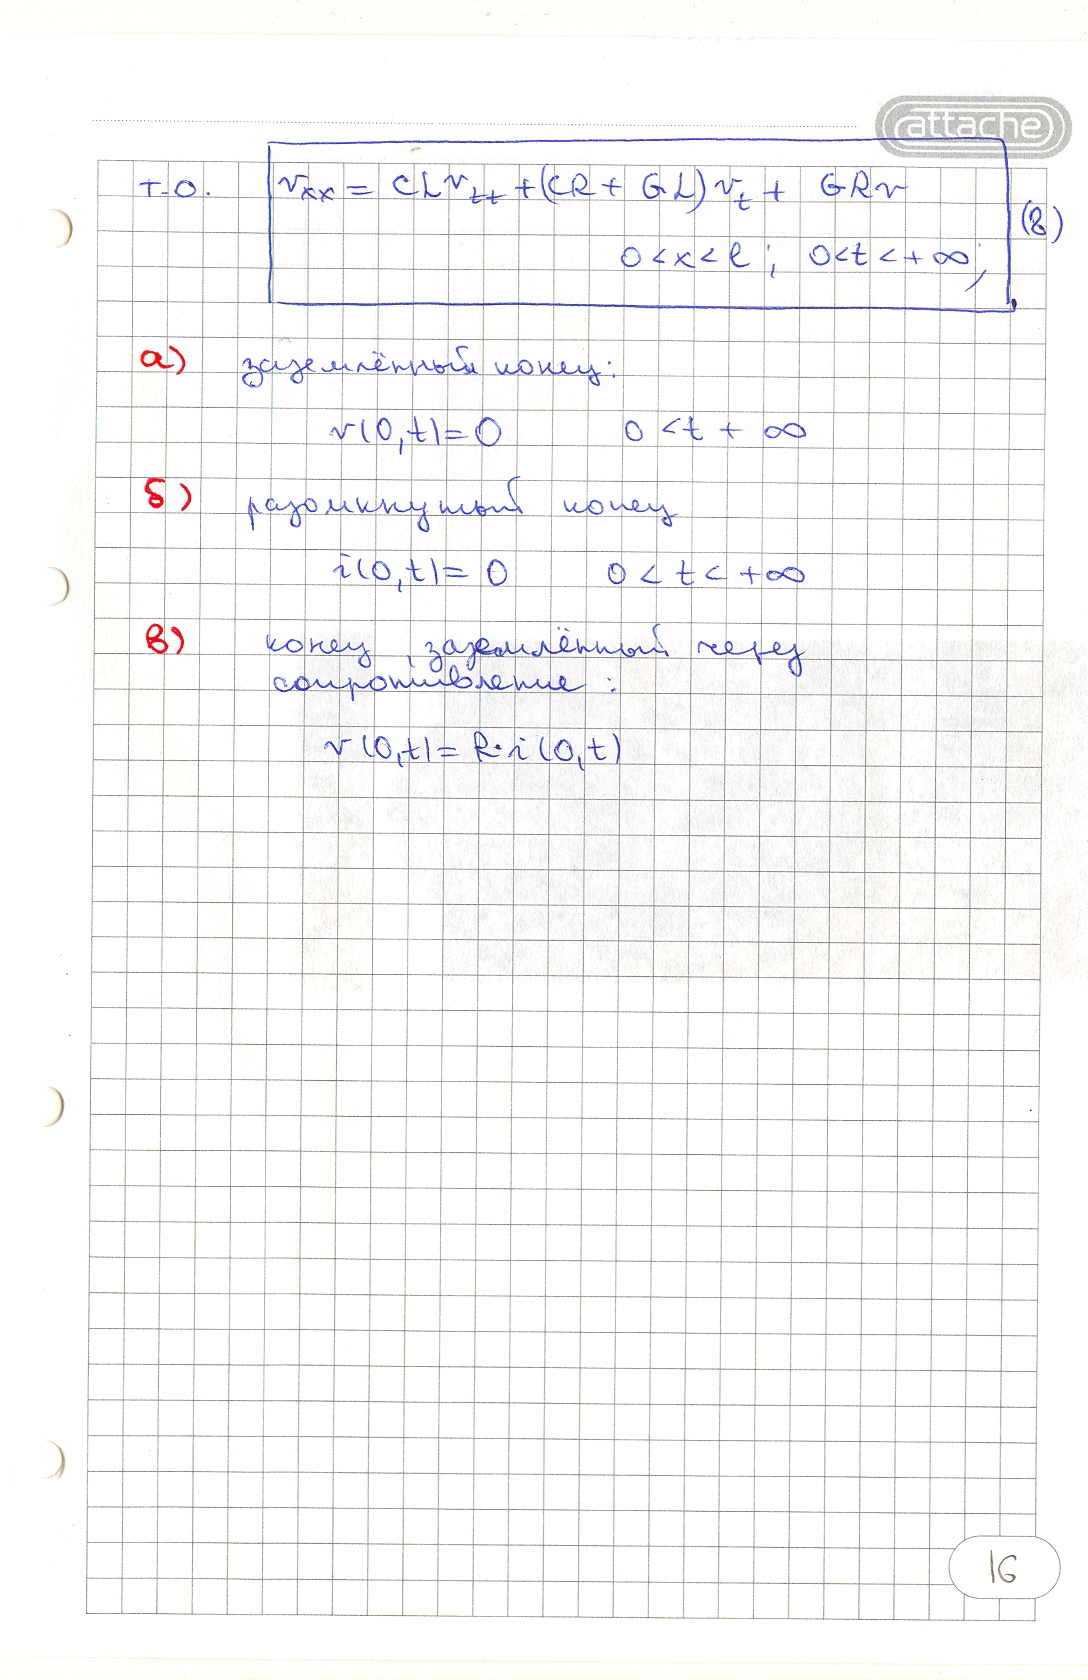 attache
т.о. v_xx = CLv_tt + (CR + GL)v_t + GRv
(8)
0 < x < l ; 0 < t < + ∞ ;
а) заземлённый конец:
v(0,t) = 0 0 < t + ∞
б) разомкнутый конец
i(0,t) = 0 0 < t < +∞
в) конец, заземлённый через
сопротивление :
v(0,t) = R·i(0,t)
16